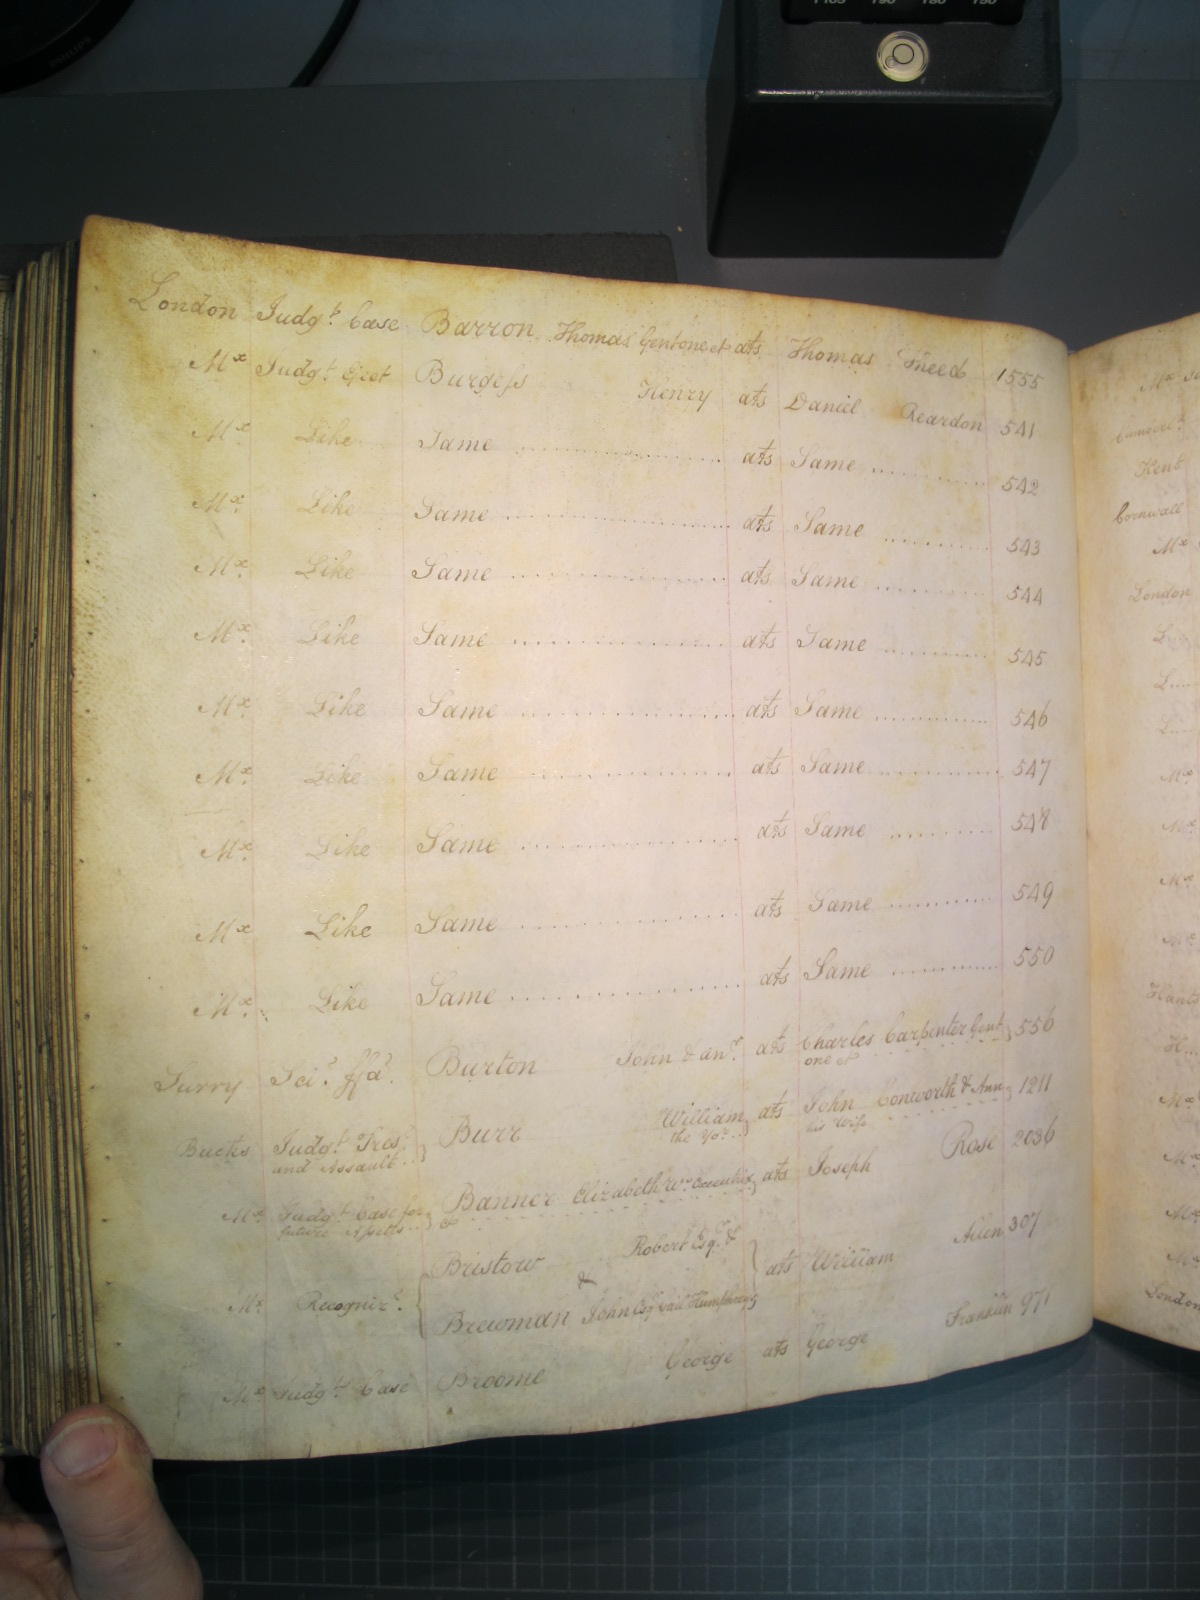 London Judgt. Case Barron Thomas Gent one et ats Thomas Sneed 1555
Mx Judgt. Eject Burgess Henry ats Daniel Reardon 541
Mx. Like Same ats Same 542
Mx. Like Same ats Same 543
Mx. Like Same ats Same 544
Mx. Like Same ats Same 545
Mx. Like Same ats Same 546
Mx. Like Same ats Same 547
Mx. Like Same ats Same 548
Mx Like Same ats Same 549
Mx. Like Same ats Same 550
Surry Sci. ffa. Burton John & anr. ats Charles Carpenter Gent 556
one et
Bucks Judgt. Tres. Burr William ats John Conworth & Ann 1211
and Assault the Yor. his Wife
Mx. Judgt. Case for Banner Elizabeth Wo. Executrix ats Joseph Rose 2036
future Assets &c
Bristow Robert Esqr. &
Mx. Recogniz. & ats William Allen 307
Brewman John Esqr. Humphreys
Mx Judgt. Case Broome George ats George Franklin 971
Mx
Kent
Cornwall
Mx
London
Mx
Mx
Mx
Mx
Hants
Mx
Mx
Mx
Mx
London
PHILIPS